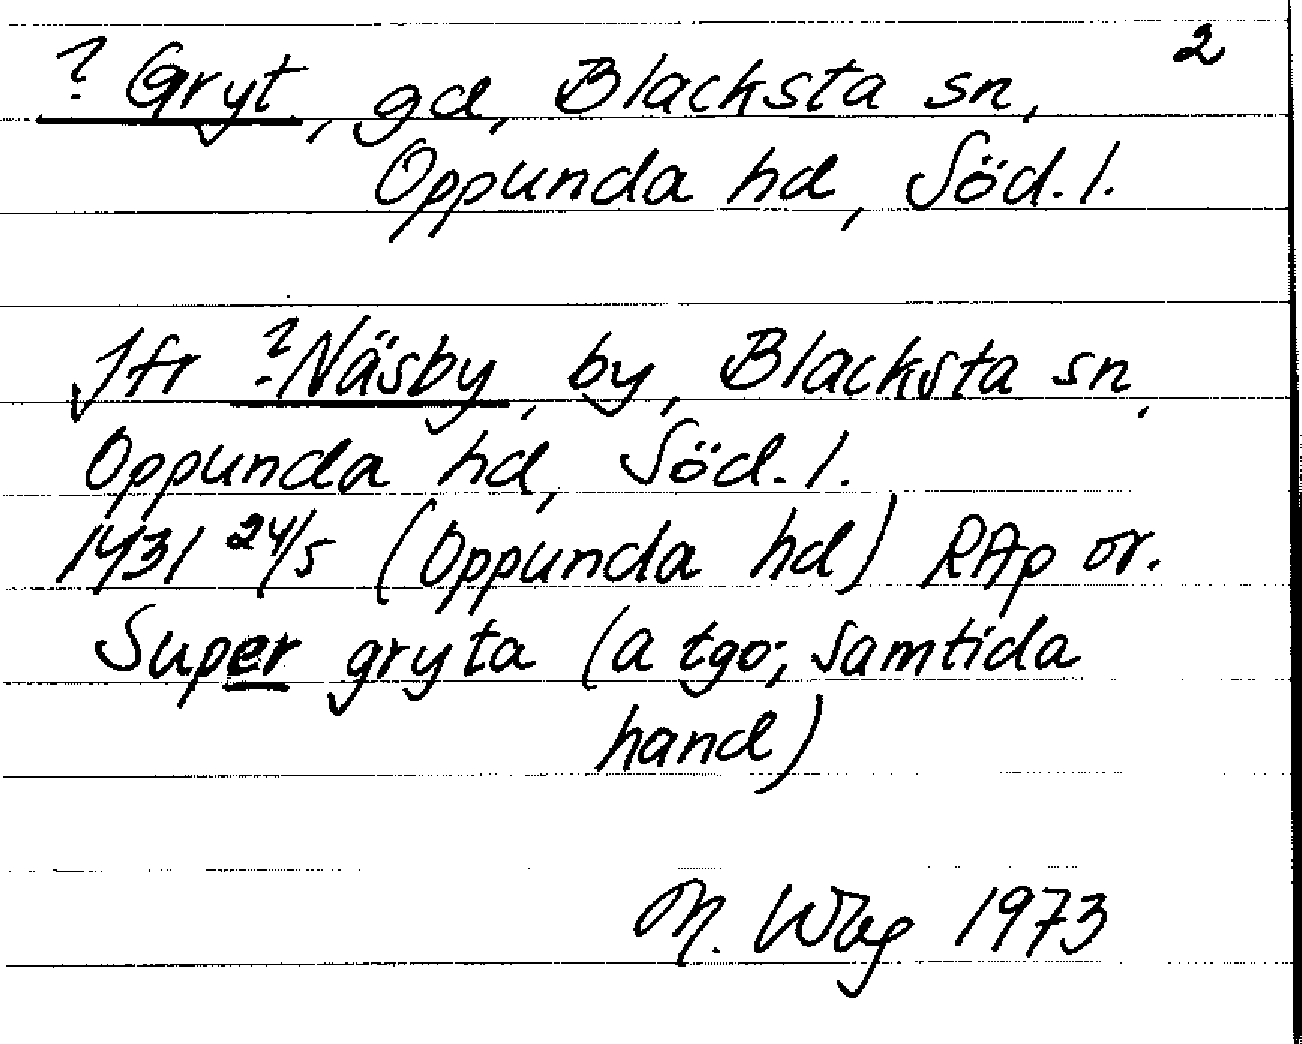 2
? Gryt, gd, Blacksta sn,
Oppunda hd, Söd. l.
Jfr ?Näsby, by, Blacksta sn,
Oppunda hd, Söd. l.
1431 24/5 (Oppunda hd) RAp or.
Super gryta (a tgo; samtida
hand)
M. Wbg 1973